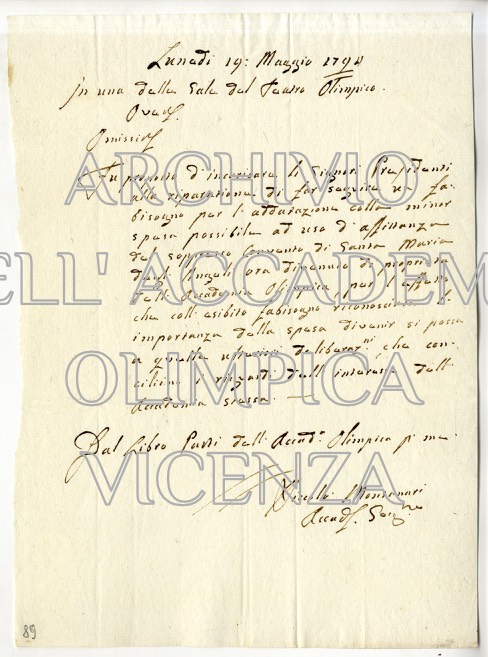 Lunedì 19: Maggio 1794
In una delle Sale del Teatro Olimpico.
Omissis
Fu proposto d'incaricare li Signori Presidenti
alla riparazione di far seguire un fa-
bisogno per l'adattazione colla minor
spesa possibile ad uso d'affittanza
del soppresso Convento di Santa Maria
degl'Angeli ora divenuto di proprietà
dell'Accademia Olimpica per l'effetto
che coll'esibito fabisogno riconosciuta l'
importanza della spesa divenir si possa
a quelle ulteriori deliberar.ni che con-
cilino i riguardi dell'interesse dell'
Accademia stessa.
Dal Libro Parti dell'Accad.a Olimpica
Nicolò Montanari
Accad.
89
ARCHIVIO
ELL'ACCADEM
OLIMPICA
VICENZA